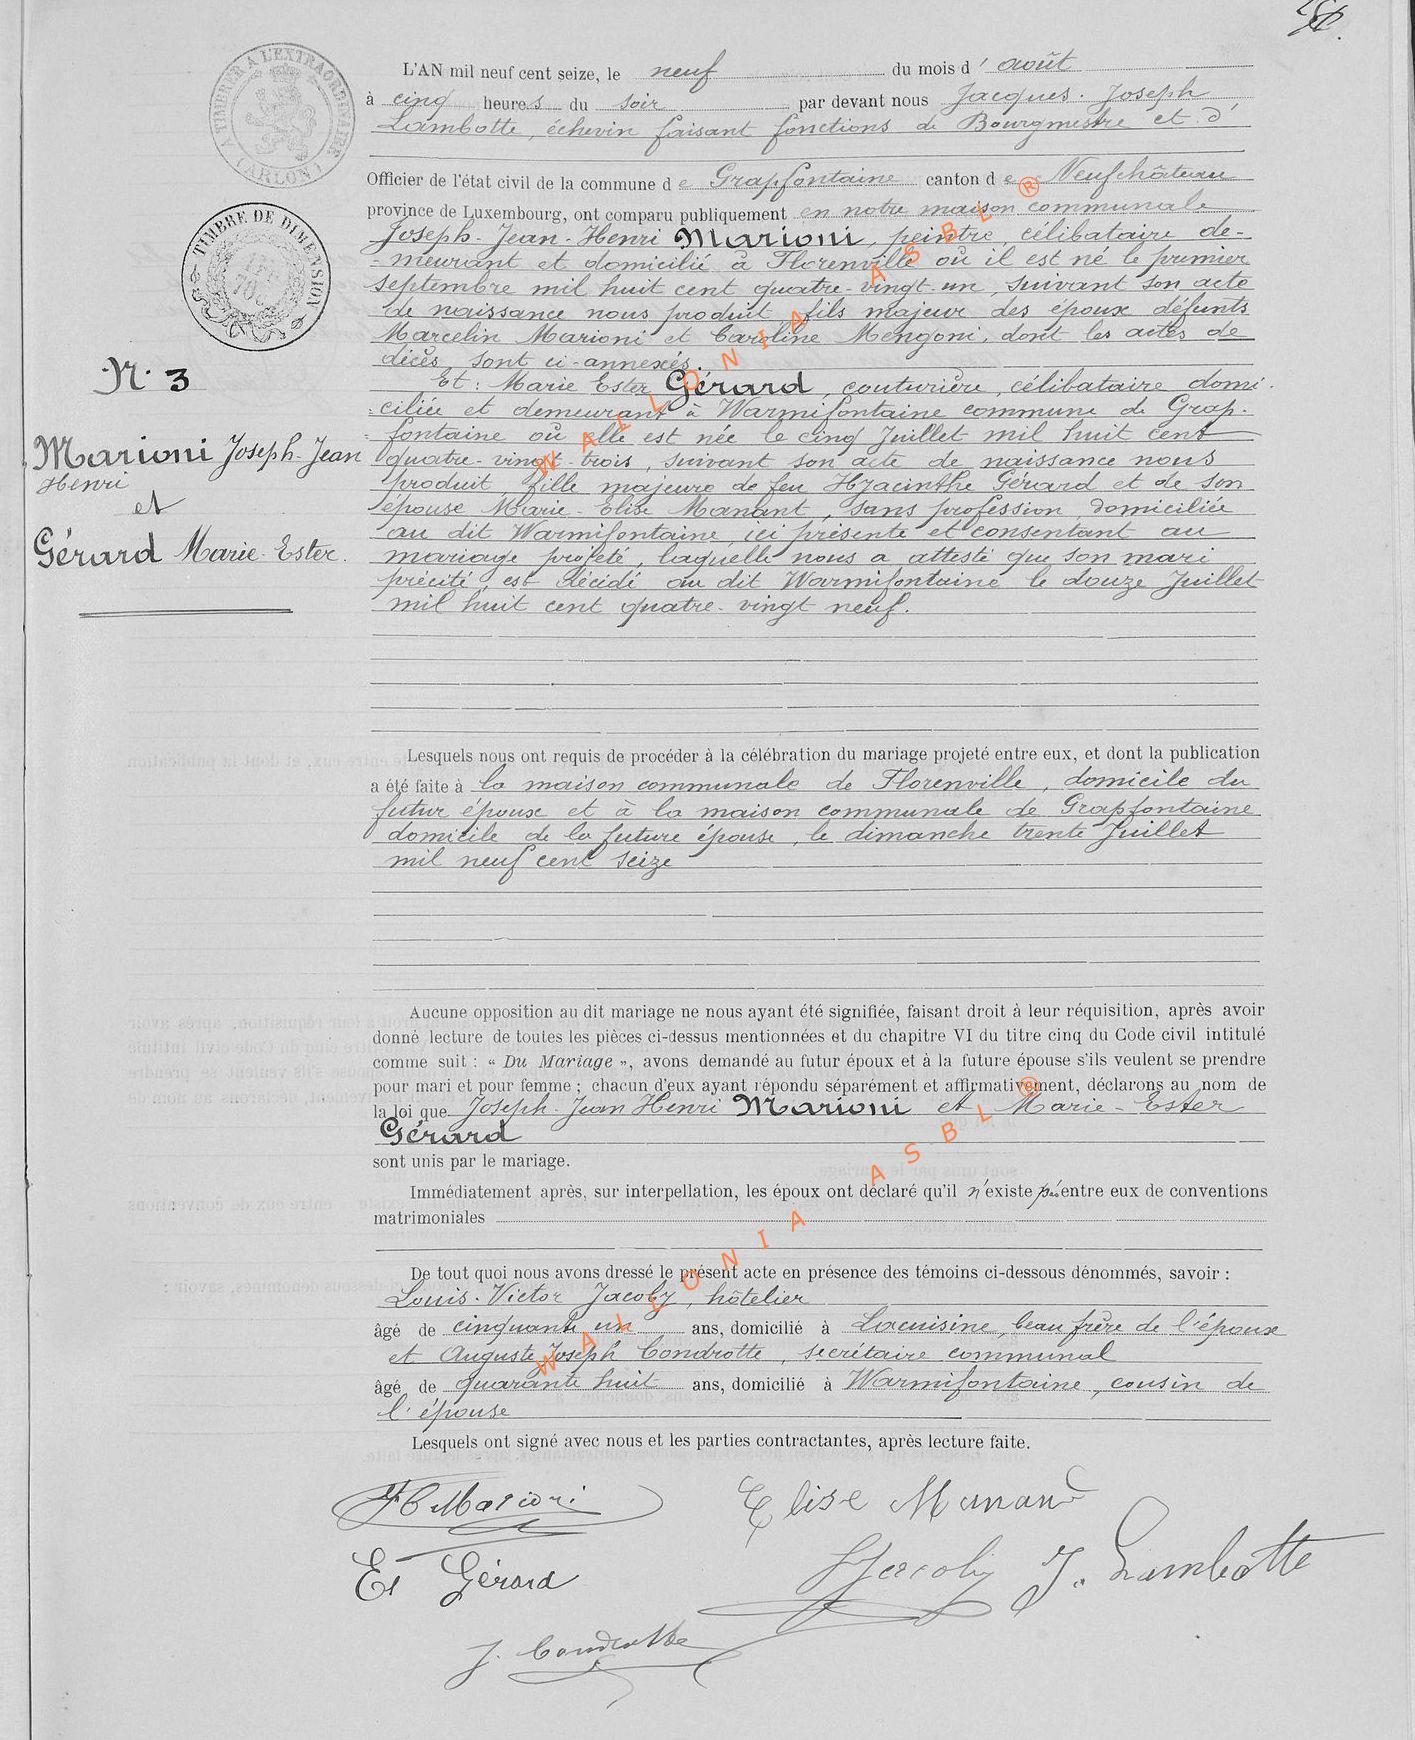 A TIMBRER A L'EXTRAORDINAIRE
(ARLON)
TIMBRE DE DIMENSION
L'AN mil neuf cent seize, le neuf du mois d'août
à cinq heures du soir par devant nous Jacques-Joseph
Lambotte, échevin faisant fonctions de Bourgmestre et d'
Officier de l'état civil de la commune de Grapfontaine canton de Neufchâteau
province de Luxembourg, ont comparu publiquement en notre maison communale
Joseph-Jean-Henri Marioni, peintre, célibataire de-
-meurant et domicilié à Florenville où il est né le premier
septembre mil huit cent quatre-vingt-un, suivant son acte
de naissance nous produit, fils majeur des époux défunts
Marcelin Marioni et Caroline Mengoni, dont les actes de
décès sont ci-annexés
Et: Marie Ester Gérard, couturière, célibataire domi-
-ciliée et demeurant à Warmifontaine commune de Grap-
fontaine où elle est née le cinq Juillet mil huit cent
quatre-vingt-trois, suivant son acte de naissance nous
produit, fille majeure de feu Hyacinthe Gérard et de son
épouse Marie-Elise Manant, sans profession, domiciliée
au dit Warmifontaine, ici présente et consentant au
mariage projeté, laquelle nous a attesté que son mari
précité est décédé au dit Warmifontaine le douze Juillet
mil huit cent quatre-vingt neuf.
N. 3
Marioni Joseph-Jean
Henri
et
Gérard Marie-Ester.
Lesquels nous ont requis de procéder à la célébration du mariage projeté entre eux, et dont la publication
a été faite à la maison communale de Florenville, domicile du
futur époux et à la maison communale de Grapfontaine
domicile de la future épouse, le dimanche trente Juillet
mil neuf cent seize
Aucune opposition au dit mariage ne nous ayant été signifiée, faisant droit à leur réquisition, après avoir
donné lecture de toutes les pièces ci-dessus mentionnées et du chapitre VI du titre cinq du Code civil intitulé
comme suit : « Du Mariage », avons demandé au futur époux et à la future épouse s'ils veulent se prendre
pour mari et pour femme ; chacun d'eux ayant répondu séparément et affirmativement, déclarons au nom de
la loi que Joseph-Jean Henri Marioni et Marie-Ester
Gérard
sont unis par le mariage.
Immédiatement après, sur interpellation, les époux ont déclaré qu'il n'existe pas entre eux de conventions
matrimoniales
De tout quoi nous avons dressé le présent acte en présence des témoins ci-dessous dénommés, savoir :
Louis-Victor Jacoby, hôtelier
âgé de cinquante un ans, domicilié à Lacuisine, beau frère de l'époux
et Auguste Joseph Condrotte, secrétaire communal
âgé de quarante huit ans, domicilié à Warmifontaine, cousin de
l'épouse
Lesquels ont signé avec nous et les parties contractantes, après lecture faite.
Marioni
Elise Manand
Es Gérard
Jacoby
J. Lambotte
J. Condrotte
WALLONIA ASBL ®
WALLONIA ASBL ®